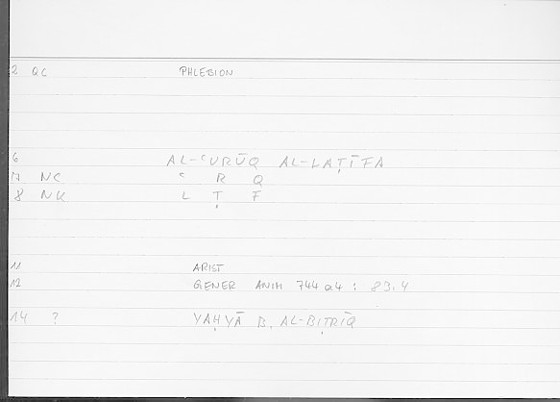 2 QC PHLEBION
6 AL-ʿURŪQ AL-LAṬĪFA
7 NC ʿ R Q
8 NK L Ṭ F
11 ARIST
12 GENER ANIM 744a4 : 83.4
14 ? YAḤYĀ B. AL-BIṬRĪQ